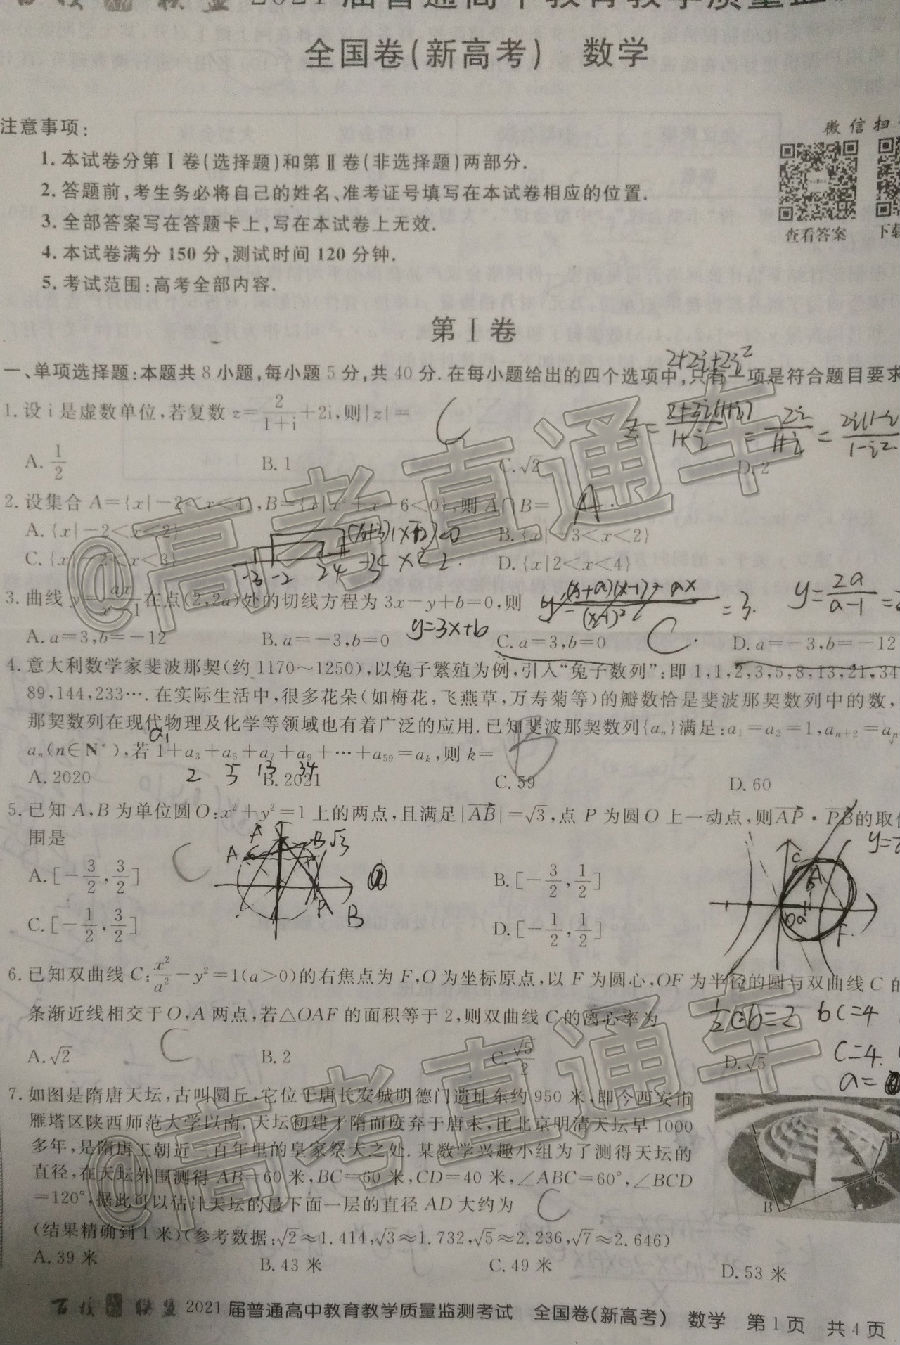 2021届普通高中教育教学质量监
全国卷(新高考) 数学
注意事项:
微信扫
1.本试卷分第Ⅰ卷(选择题)和第Ⅱ卷(非选择题)两部分.
2.答题前,考生务必将自己的姓名、准考证号填写在本试卷相应的位置.
3.全部答案写在答题卡上,写在本试卷上无效.
查看答案 下载
4.本试卷满分150分,测试时间120分钟.
5.考试范围:高考全部内容.
第Ⅰ卷
一、单项选择题:本题共8小题,每小题5分,共40分.在每小题给出的四个选项中,只有一项是符合题目要求
1.设i是虚数单位,若复数z=2/(1+i)+2i,则|z|=
C
A.1/2 B.1 C.√2 D.2
2.设集合A={x|-2<x<4},B= -6<0},则A∩B=
A
A.{x|-2<x<2} B.{x|-3<x<2}
C.{x|-2<x<3} D.{x|2<x<4}
3.曲线y= 在点(2,2a)处的切线方程为3x-y+b=0,则
y=3x+b
C
A.a=3,b=-12 B.a=-3,b=0 C.a=3,b=0 D.a=-3,b=-12
4.意大利数学家斐波那契(约1170~1250),以兔子繁殖为例,引入“兔子数列”:即1,1,2,3,5,8,13,21,34
89,144,233….在实际生活中,很多花朵(如梅花,飞燕草,万寿菊等)的瓣数恰是斐波那契数列中的数,
那契数列在现代物理及化学等领域也有着广泛的应用.已知斐波那契数列{aₙ}满足:a₁=a₂=1,aₙ₊₂=
aₙ(n∈N*),若1+a₃+a₅+a₇+a₉+…+a₅₉=aₖ,则k=
A.2020 B.2021 C.59 D.60
2 5 13 34
5.已知A,B为单位圆O:x²+y²=1上的两点,且满足|AB|=√3,点P为圆O上一动点,则AP·PB的取值
围是
C
A.[-3/2,3/2] B.[-3/2,1/2]
C.[-1/2,3/2] D.[-1/2,1/2]
6.已知双曲线C:x²/a²-y²=1(a>0)的右焦点为F,O为坐标原点,以F为圆心,OF为半径的圆与双曲线C的
条渐近线相交于O,A两点,若△OAF的面积等于2,则双曲线C的离心率为
bc=4
C
A.√2 B.2 C.√5/2 D.√5
c=4
7.如图是隋唐天坛,古叫圜丘,它位于唐长安城明德门遗址东约950米,即今西安市
雁塔区陕西师范大学以南,天坛初建于隋而废弃于唐末,比北京明清天坛早1000
多年,是隋唐王朝近三百年里的皇家祭天之处.某数学兴趣小组为了测得天坛的
直径,在天坛外围测得AB=60米,BC=60米,CD=40米,∠ABC=60°,∠BCD
=120°,据此可以估计天坛的最下面一层的直径AD大约为
C
(结果精确到1米)(参考数据:√2≈1.414,√3≈1.732,√5≈2.236,√7≈2.646)
A.39米 B.43米 C.49米 D.53米
百校联盟2021届普通高中教育教学质量监测考试 全国卷(新高考) 数学 第1页 共4页
@高考直通车
@高考直通车